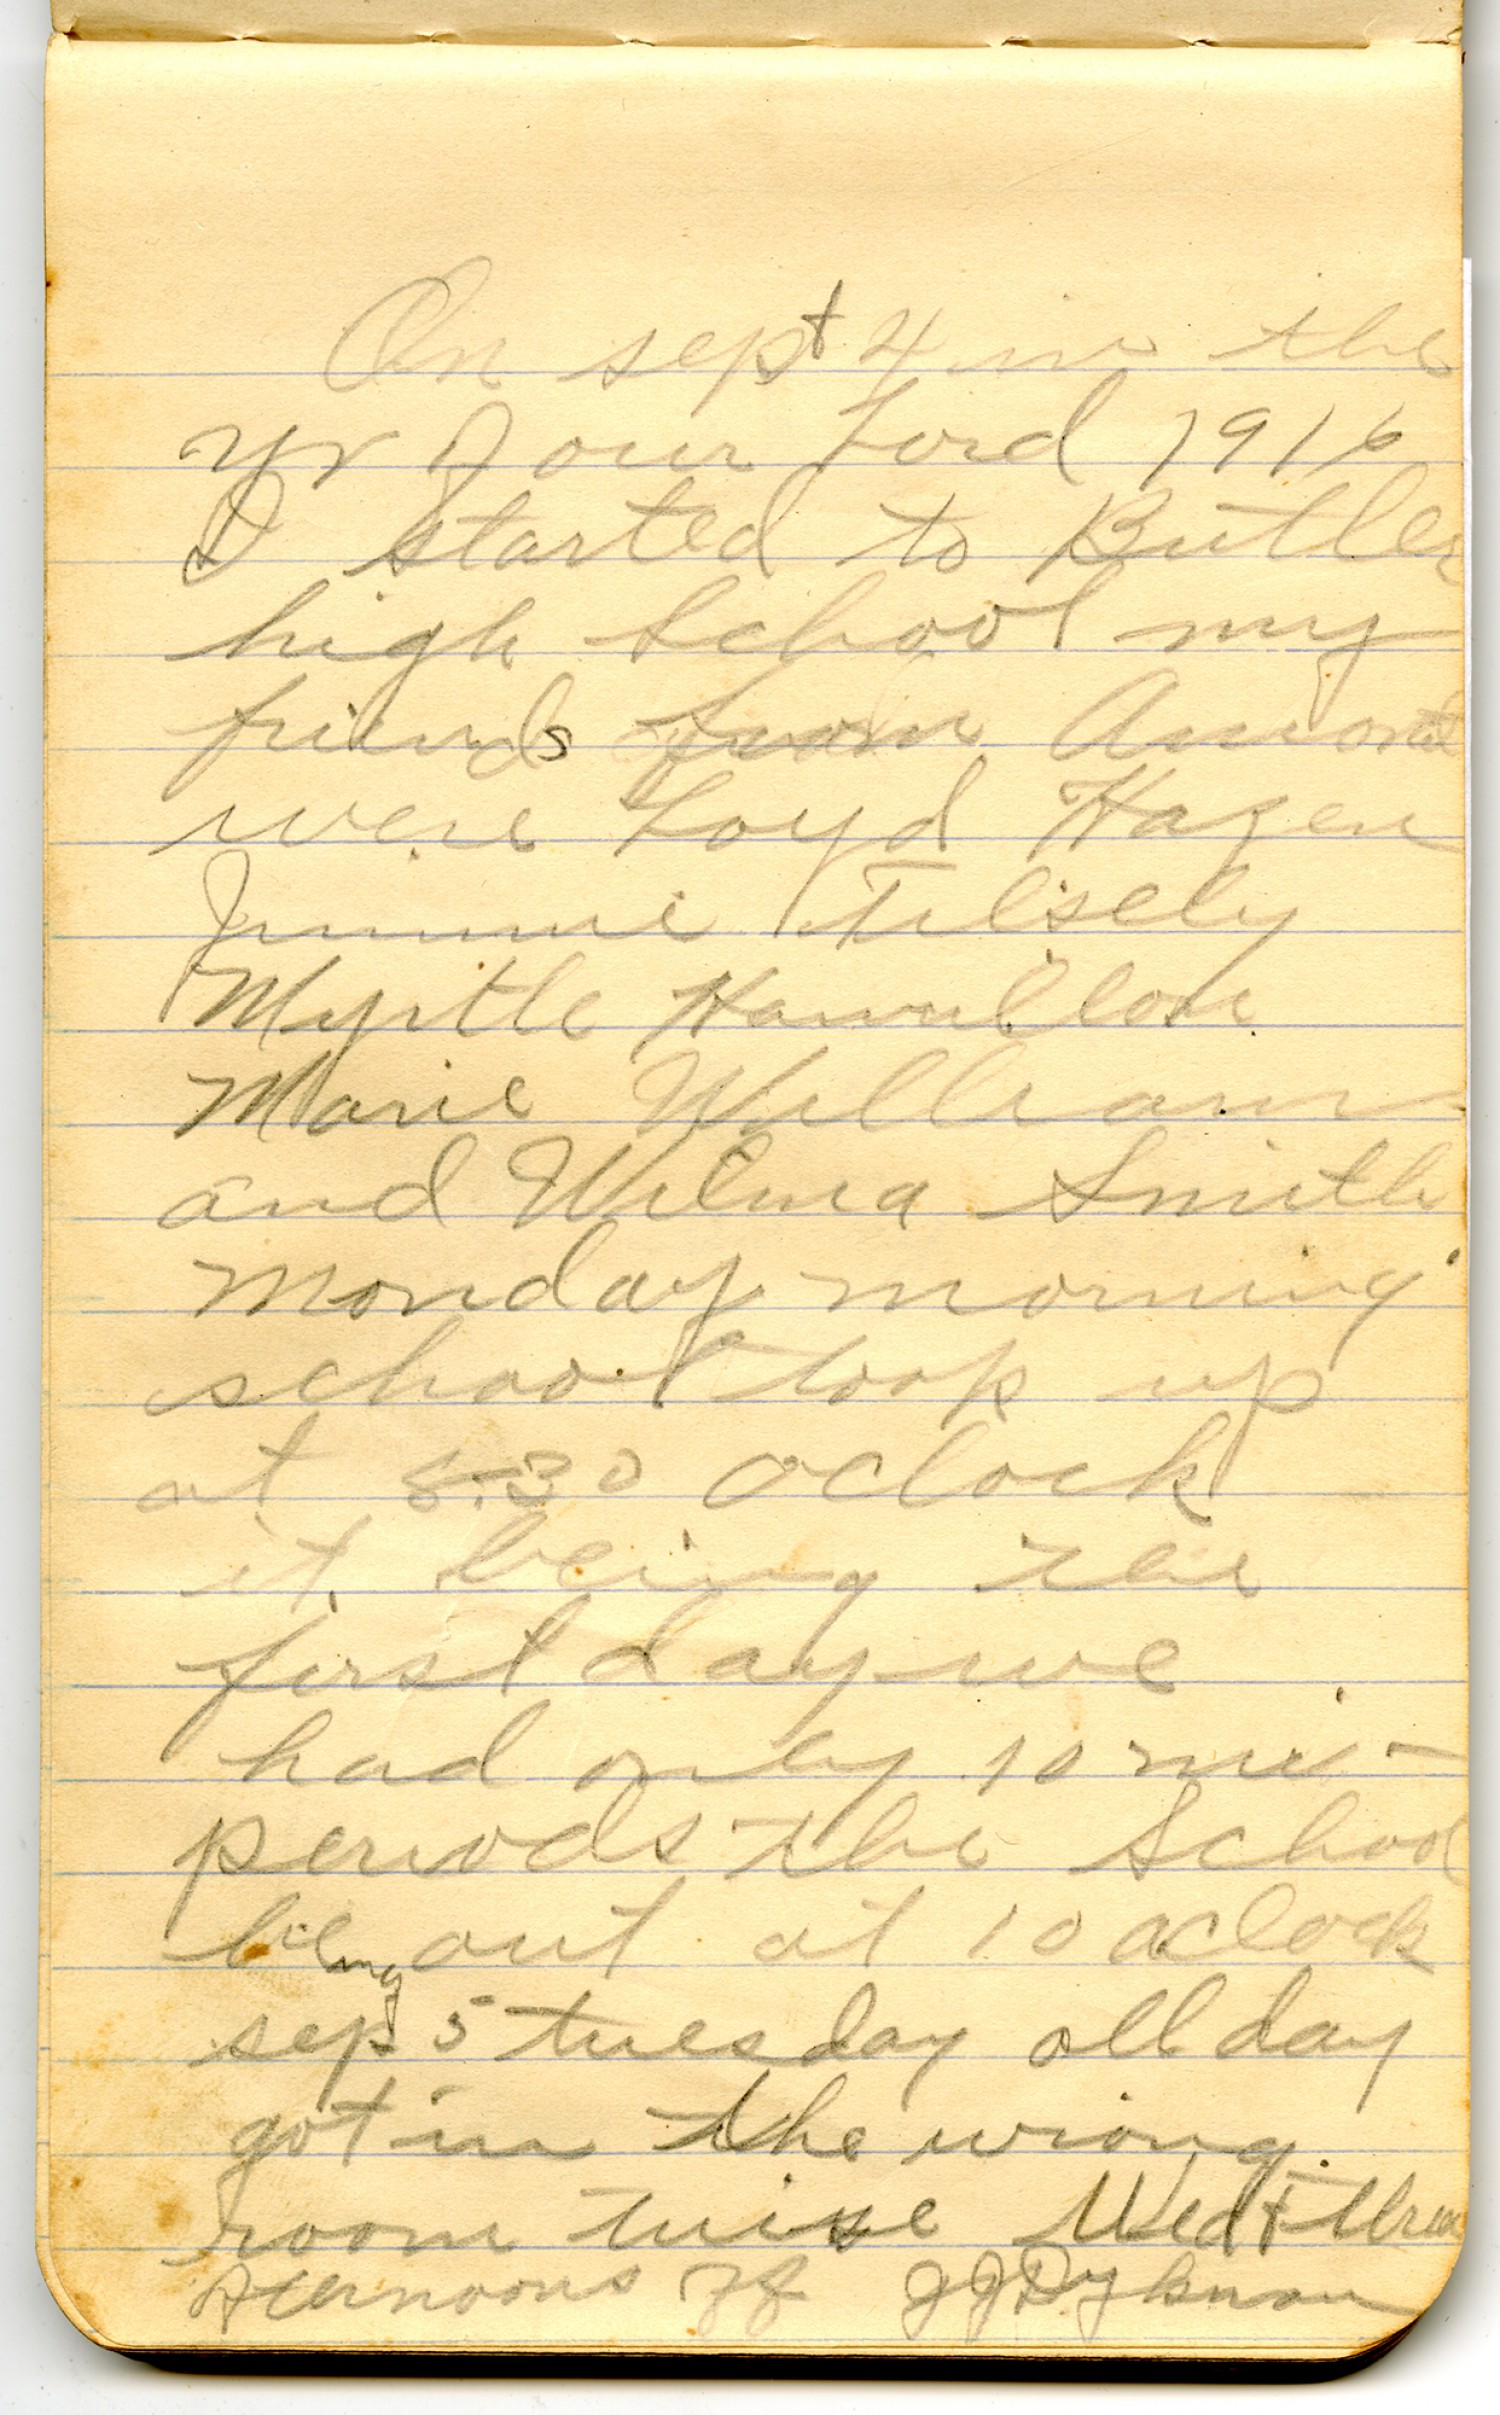 On sept 4 in the
yr of our Lord 1916
I started to Butler
high school my
friends from Amoret
were Loyd Hazen
Jimmie Tilsely
Myrtle Hamilton
Marie William
and Wilma Smith
Monday morning
school took up
at 8:30 oclock
it being the
first day we
had only 10 mi-
periods the school
being out at 10 oclock
sep 5 tuesday all day
got in the wrong
room twise Wed +
Afternoons of